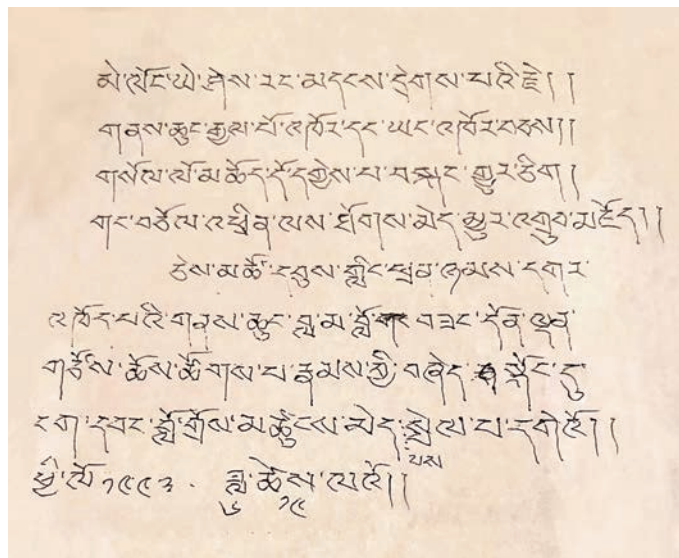 མེ་ལོང་ཡེ་ཤེས་རང་མདངས་དྲེགས་པའི་རྗེ། །
གནས་ཆུང་རྒྱལ་པོ་འཁོར་དང་ཡང་འཁོར་བཅས།།
གསོལ་ལོ་མཆོད་དོ་དགྱེས་པ་བསྐང་གྱུར་ཅིག །
གང་བཅོལ་འཕྲིན་ལས་ཐོགས་མེད་མྱུར་འགྲུབ་མཛོད།།
ཅེས་མཚོ་དབུས་གླིང་ཕྲན་ཉམས་དགར་
འཁོད་པའི་གནས་ཆུང་བླ་མ་བློ་བཟང་དོན་ལྡན་
གཙོས་ཆོས་ཚོགས་པ་རྣམས་ཀྱི་བཞེད་སྐོང་དུ་
ངག་དབང་བློ་གྲོས་མཚུངས་མེད་སྤེལ་བ་དགེའོ།།
པས
ཕྱི་ལོ་༡༩༩༣. ཟླ་ཚེས་ལའོ།།
༦ ༡༩